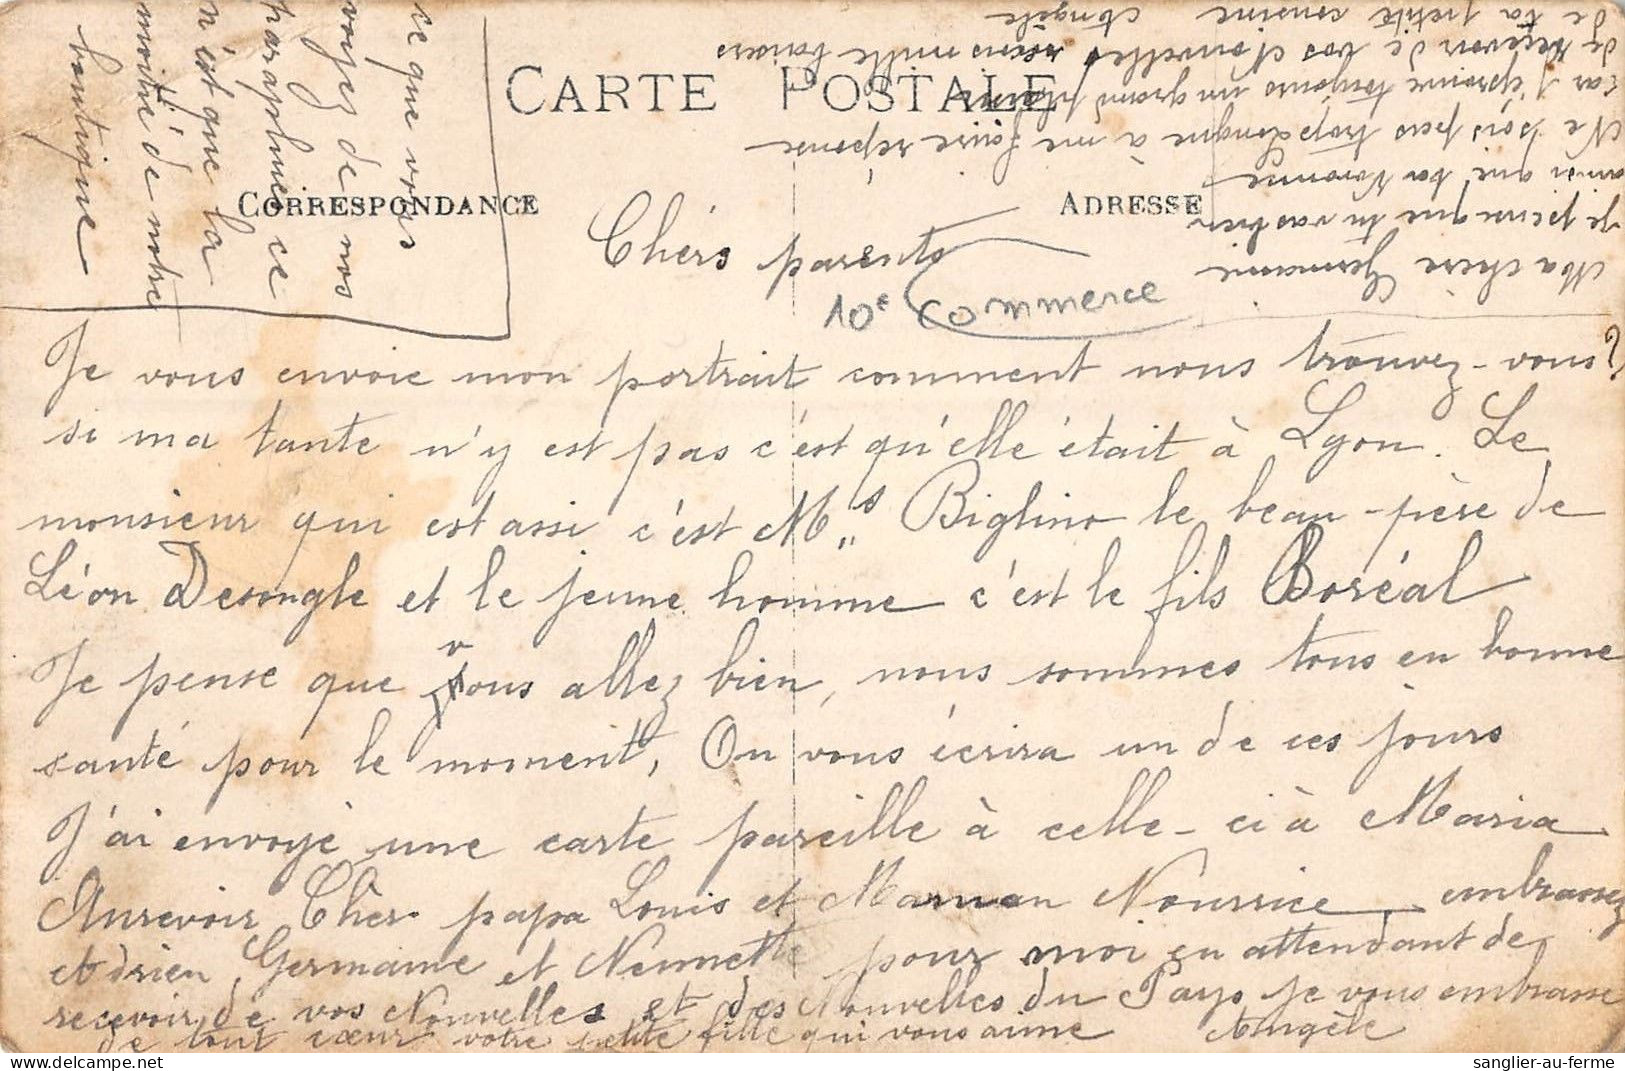 CARTE POSTALE
CORRESPONDANCE
ADRESSE
Chèrs parents
10e commerce
Je vous envoie mon portrait comment nous trouvez-vous?
si ma tante n'y est pas c'est qu'elle était à Lyon. Le
monsieur qui est assi c'est Ms Biglino le beau-père de
Léon Desongle et le jeune homme c'est le fils Boréal
Je pense que vous allez bien, nous sommes tous en bonne
santé pour le moment, On vous écrira un de ces jours
J'ai envoyé une carte pareille à celle-ci à Maria
Aurevoir Chèr papa Louis et Maman Nourrice, embrassez
Adrien Germaine et Nennette pour moi en attendant de
recevoir de vos Nouvelles et des Nouvelles du Pays je vous embrasse
de tout cœur votre petite fille qui vous aime Angèle
ce que vous
voyez de nos
paraplui ce
n'est que la
moitié de notre
boutique
Ma chère Germaine
je pense que tu vas bien
ainsi que ta
Ne sois pas trop longue à me faire réponse
car j'éprouve toujours un grand plaisir
de reçevoir de vos Nouvelles reçois mille baisers
de ta petite cousine Angèle
sanglier-au-ferme